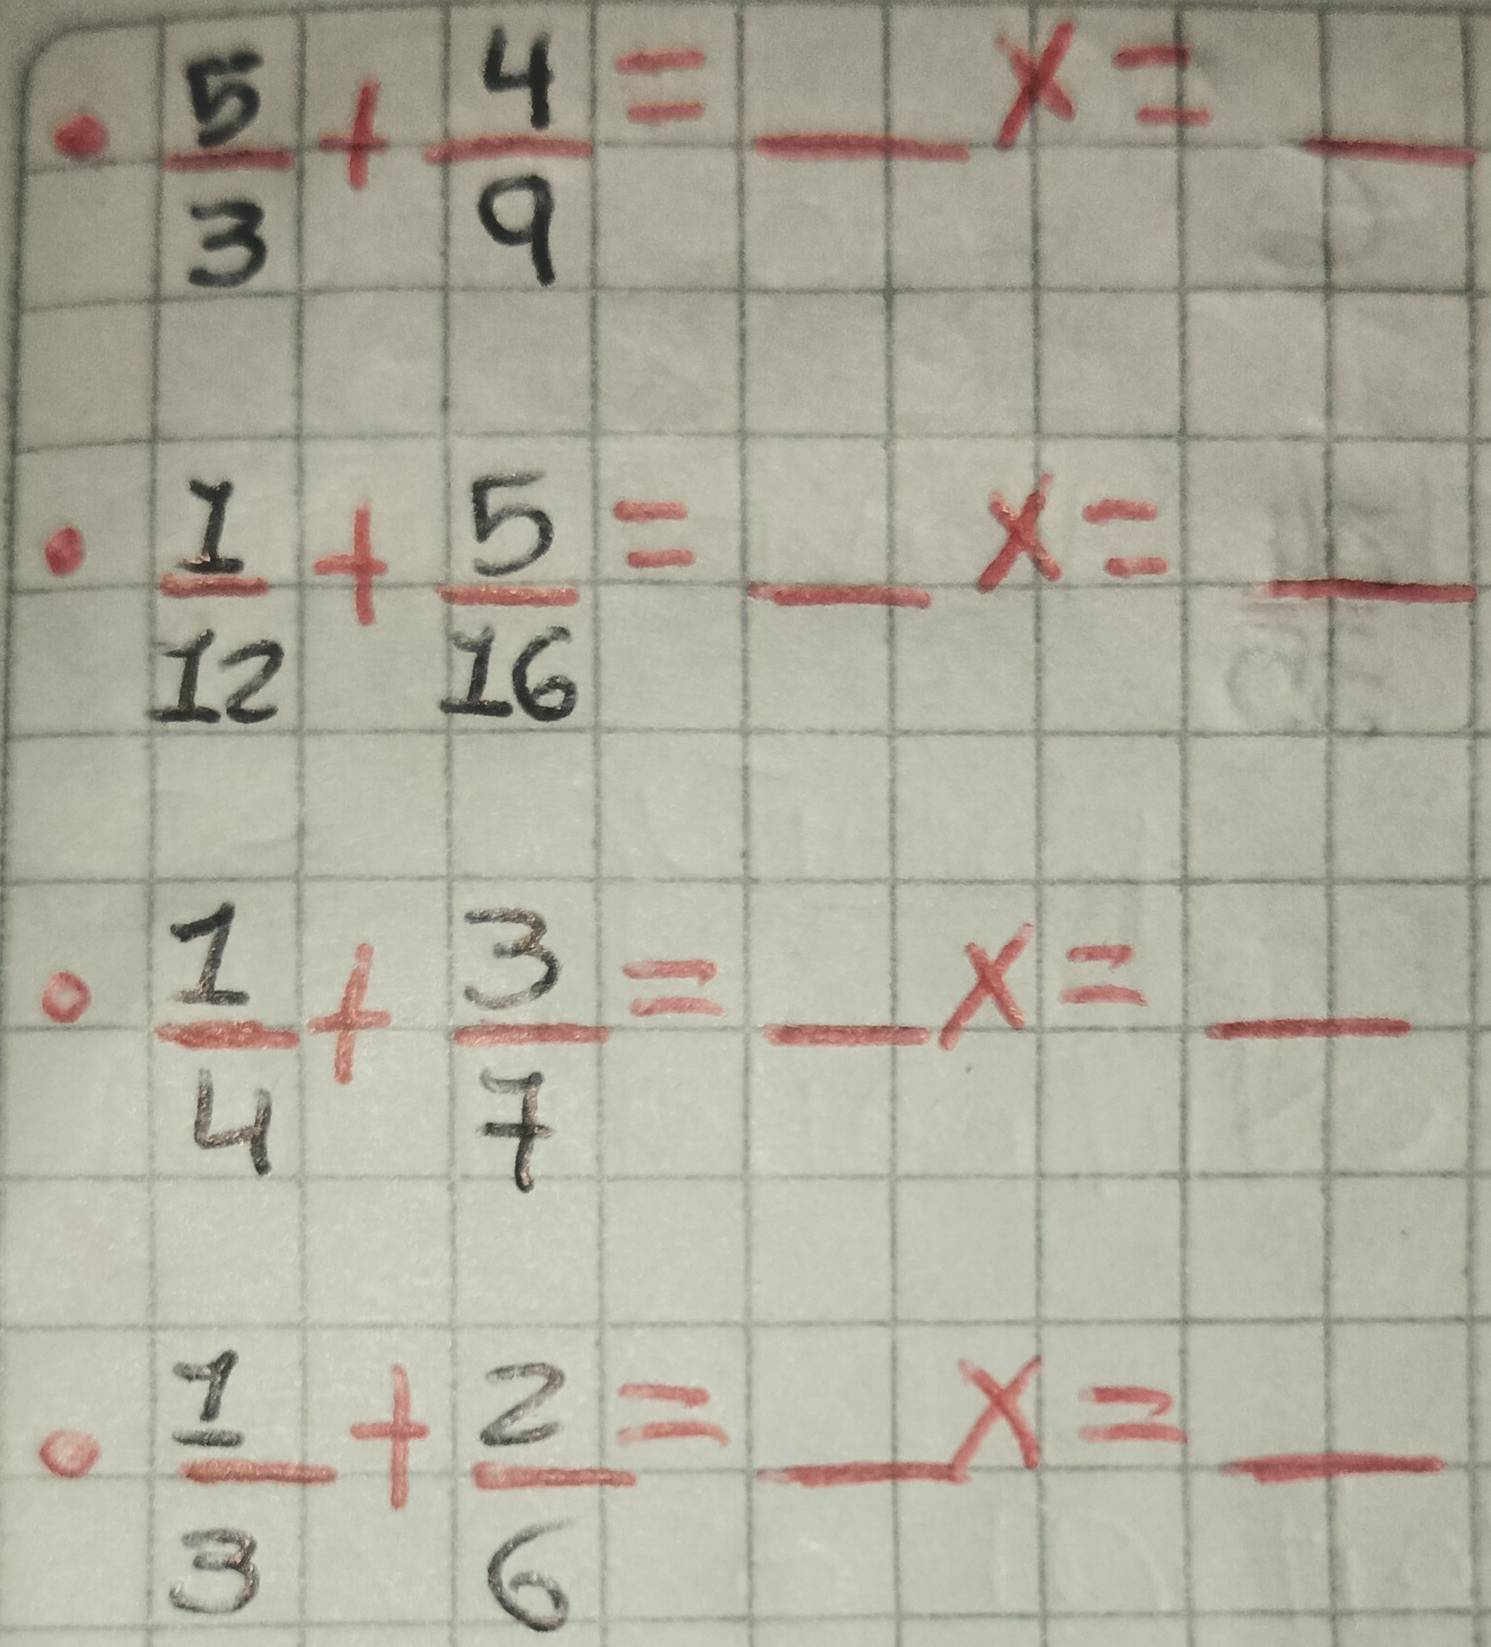 • 5/3 + 4/9 = __ x = __
• 1/12 + 5/16 = __ x = __
• 1/4 + 3/7 = __ x = __
• 1/3 + 2/6 = __ x = __